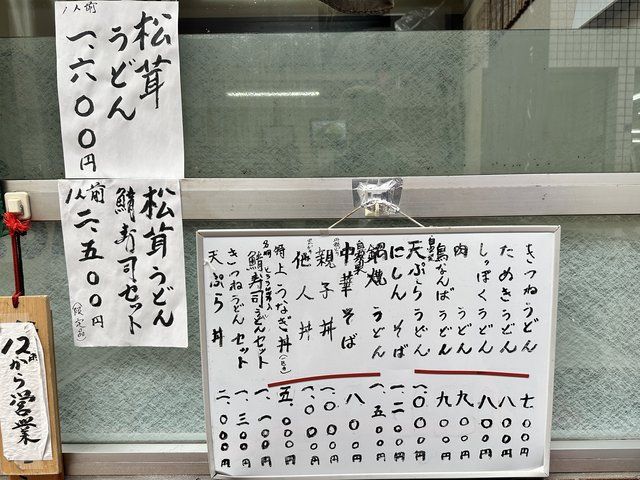 松茸
うどん
1人前
一、六〇〇円
松茸うどん
鯖寿司セット
1人前
二、五〇〇円
(限定品)
12時から営業
きつねうどん 七〇〇円
たぬきうどん 八〇〇円
しっぽくうどん 八〇〇円
肉うどん 九〇〇円
鶏なんばうどん 九〇〇円
天ぷらうどん 一、〇〇〇円
にしんそば 一、二〇〇円
鍋焼うどん 一、五〇〇円
中華そば 八〇〇円
親子丼 一、〇〇〇円
他人丼 一、〇〇〇円
特上うなぎ丼 五、〇〇〇円
鯖寿司うどんセット 一、一〇〇円
きつねうどんセット 一、三〇〇円
天ぷら丼 二、〇〇〇円